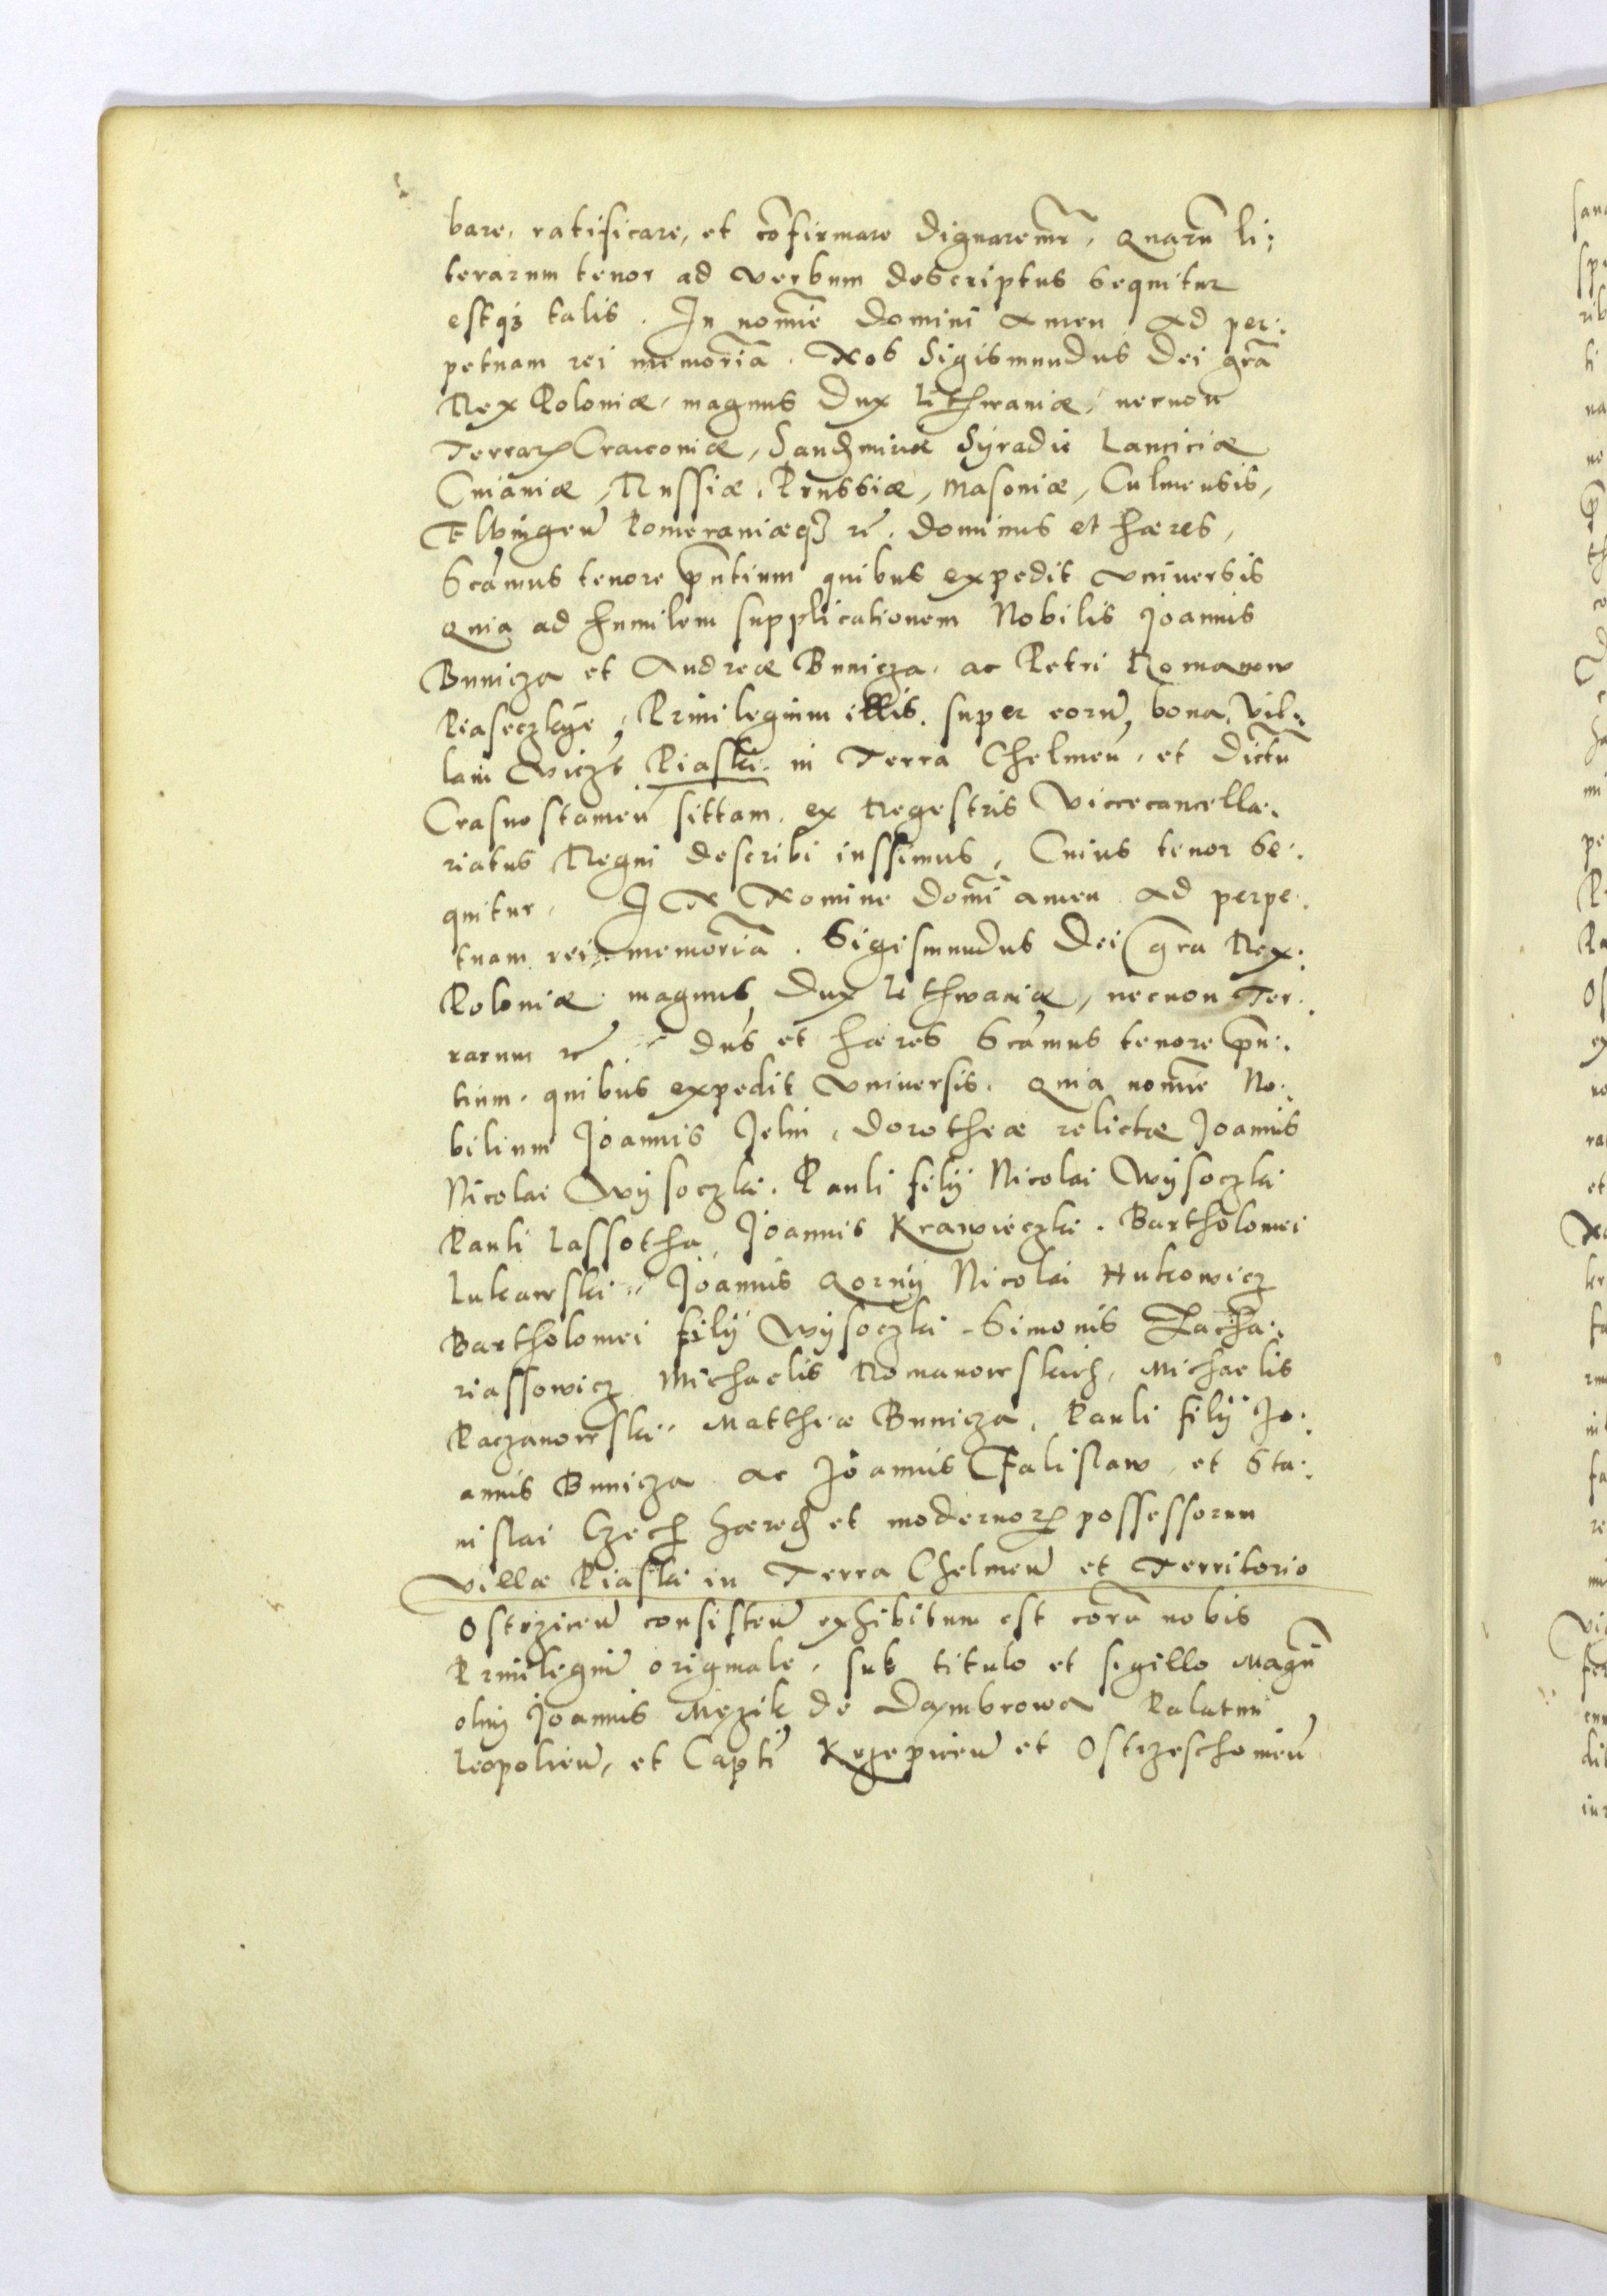 bare, ratificare, et cõfirmare dignaremr̃, Quarũ li:
terarum tenor ad verbum descriptus sequitur
estq3 talis. In nomĩe Domini Amen. Ad per:
petuam rei memoriã. Nos Sigismundus Dei grã
Rex Poloniæ, magnus Dux Lithwaniæ, necnon
Terrarꝝ Cracoviæ, Sandmiriæ Syradiæ Lanciciæ
Cuiaviæ, Russiæ, Prussiæ, Masoviæ, Culmensis,
Elbingeñ Pomeraniæq3 rc̃. Dominus et hæres,
Scamus tenore pñtium quibus expedit vniversis
Quia ad humilem supplicationem Nobilis Joannis
Bunicza et Andreæ Bunicza, ac Petri Romanow
Piaseczkye, Privilegium illis super eorũ bona, vil:
lam vidz Piaski in Terra Chelmeñ, et dictũ
Crasnostameñ sittam, ex Regestris Viccecancella:
riatus Regni describi iussimus, Cuius tenor se:
quitur. IN Nomine Domĩ amen Ad perpe:
tuam rei memoriã. Sigismundus Dei gra Rex:
Poloniæ magnus Dux Lithwaniæ, necnon Ter:
rarum rc̃ dũs et hæres Scamus tenore pñ:
tium, quibus expedit vniversis. Quia nomĩe No:
bilium Joannis Jelin, Dorotheæ relictæ Joannis
Nicolai Wysoczki, Pauli filij Nicolai Wysoczki
Pauli Lassotha, Joannis Krawieczki, Bartholomei
Lukawski, Joannis Qorny Nicolai Hutkowicz
Bartholomei filij Wysoczki, Simonis Zacha:
riassowicz Michaelis Romanowskich, Michaelis
Paczanowski, Matthiæ Bunicza, Pauli filij Jo:
annis Bunicza ac Joannis Falislaw, et Sta:
nislai Czech hæred et modernorꝝ possessorum
villæ Piaski in Terra Chelmeñ et Territorio
Ostrziceñ consisteñ exhibitum est corã nobis
Privilegiũ originale, sub titulo et sigillo Magñ
olim Joannis Mezik de Dambrowa Palatini
Leopolieñ, et Capti Krzepiceñ et Ostrzeschoweñ